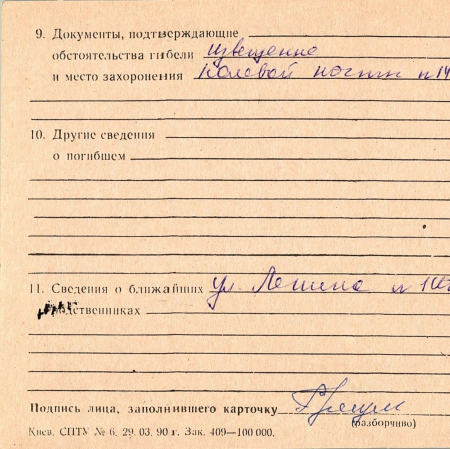 9. Документы, подтверждающие
обстоятельства гибели извещение
и место захоронения полевой почты п
10. Другие сведения
о погибшем
11. Сведения о ближайших ул. Ленина
родственниках
Подпись лица, заполнившего карточку
(разборчиво)
Киев. СПТУ № 6. 29. 03. 90 г. Зак. 409—100 000.